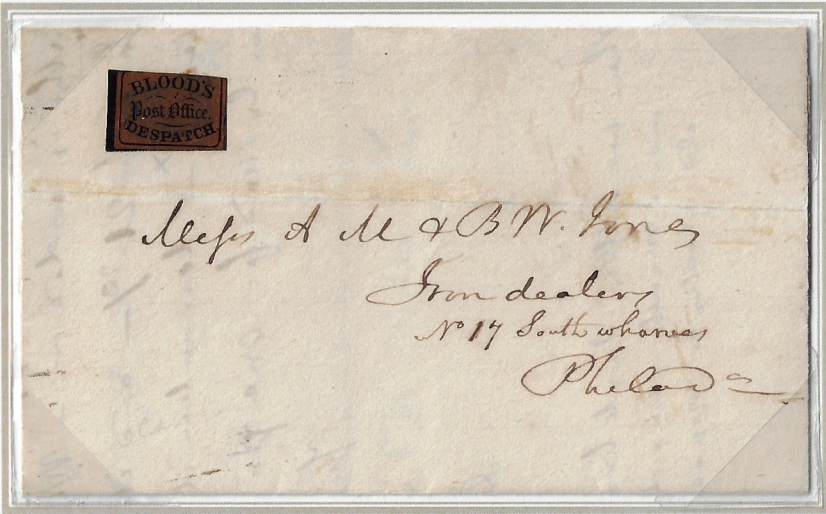 BLOOD'S
Post Office.
DESPATCH.
Mess A M & B W. Jones
Iron dealers
No 17 South wharves
Philada